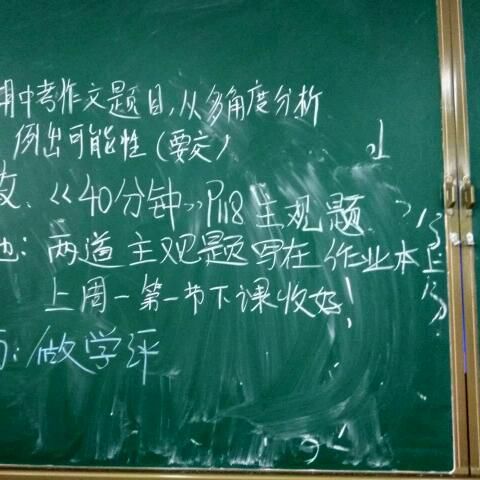 期中考作文题目,从多角度分析
例出可能性(要交)
《40分钟》P118主观题
:两道主观题写在作业本上
上周一第一节下课收好!
:做学评